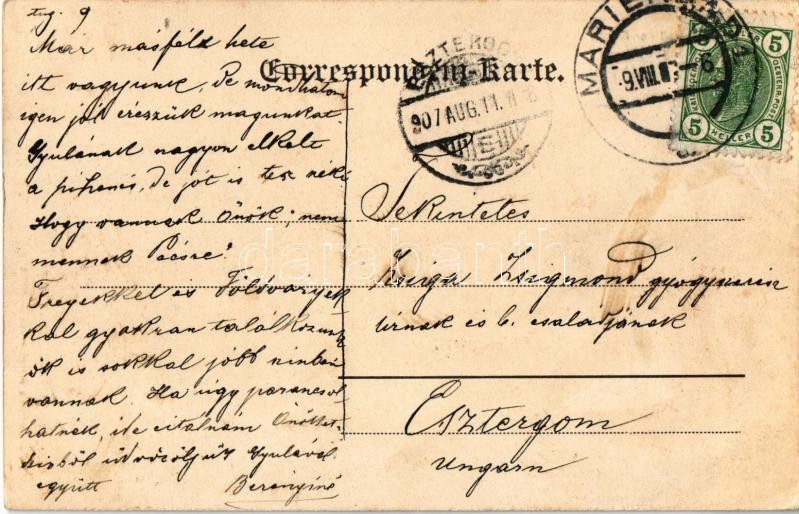 Aug. 9
Már másfél hete
itt vagyunk, de mondhatom
igen jól érezzük magunkat.
Gyulának nagyon elkelt
a pihenés, de jót is tesz néki
Hogy vannak Önök; nem
mennek Pécsre?
Freyékkel és Földváryék-
kal gyakran találkozunk
ők is sokkal jobb színben
vannak. Ha úgy parancsol
hatnék, ide citálnám Önöket
üdvözöljük Gyulával
együtt Berényiné
Correspondenz-Karte.
ESZTERGO
907 AUG. 11.
E
MARIENBAD
9.VIII.0
5 5
5 HELLER 5
Tekintetes
Zsiga Zsigmond gyógyszerész
úrnak és b. családjának
Esztergom
Ungarn
darabanth